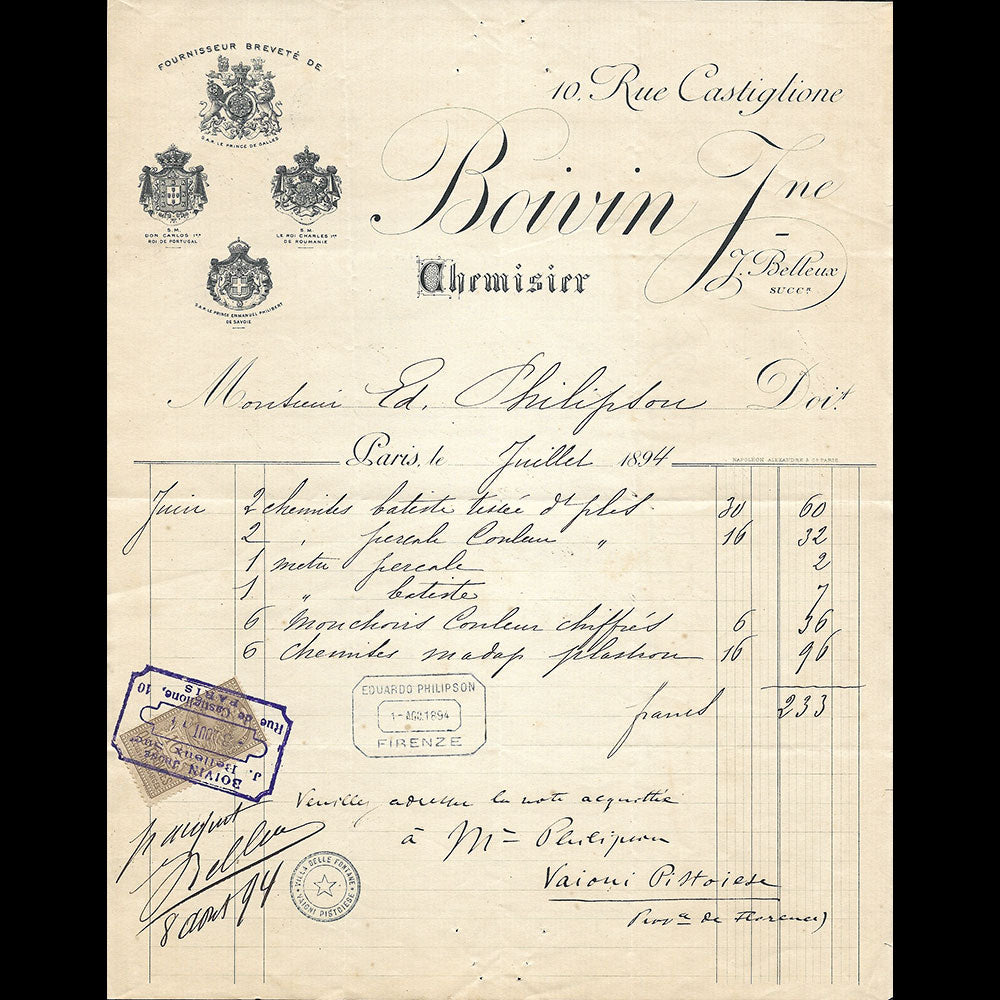 FOURNISSEUR BREVETÉ DE
S.A.R. LE PRINCE DE GALLES
S. M.
DON CARLOS 1er
ROI DE PORTUGAL
S. M.
LE ROI CHARLES 1er
DE ROUMANIE
S.A.R. LE PRINCE EMMANUEL PHILIBERT
DE SAVOIE
10, Rue Castiglione
Boivin Jne
J. Belleux
SUCCR
Chemisier
Monsieur Ed. Philipson Doit
Paris, le Juillet 1894
NAPOLÉON ALEXANDRE & Cie PARIS
Juin 2 chemises batiste tissée dt plis 30 60
2 " percale Couleur " 16 32
1 metre percale 2
1 " batiste 7
6 Mouchoirs Couleur chiffrés 6 36
6 chemises madap plastron 16 96
francs 233
EDUARDO PHILIPSON
1-AGO.1894
FIRENZE
BOIVIN Jeune
J. Belleux Sucr
Rue de Castiglione, 10
PARIS
Veuillez adresser la note acquittée
à Mr Philipson
Vaioni Pistoiese
Provce de Florence)
pr acquit
Belleux
8 aout 94
VILLA DELLE FONTANE
VAIONI PISTOIESE